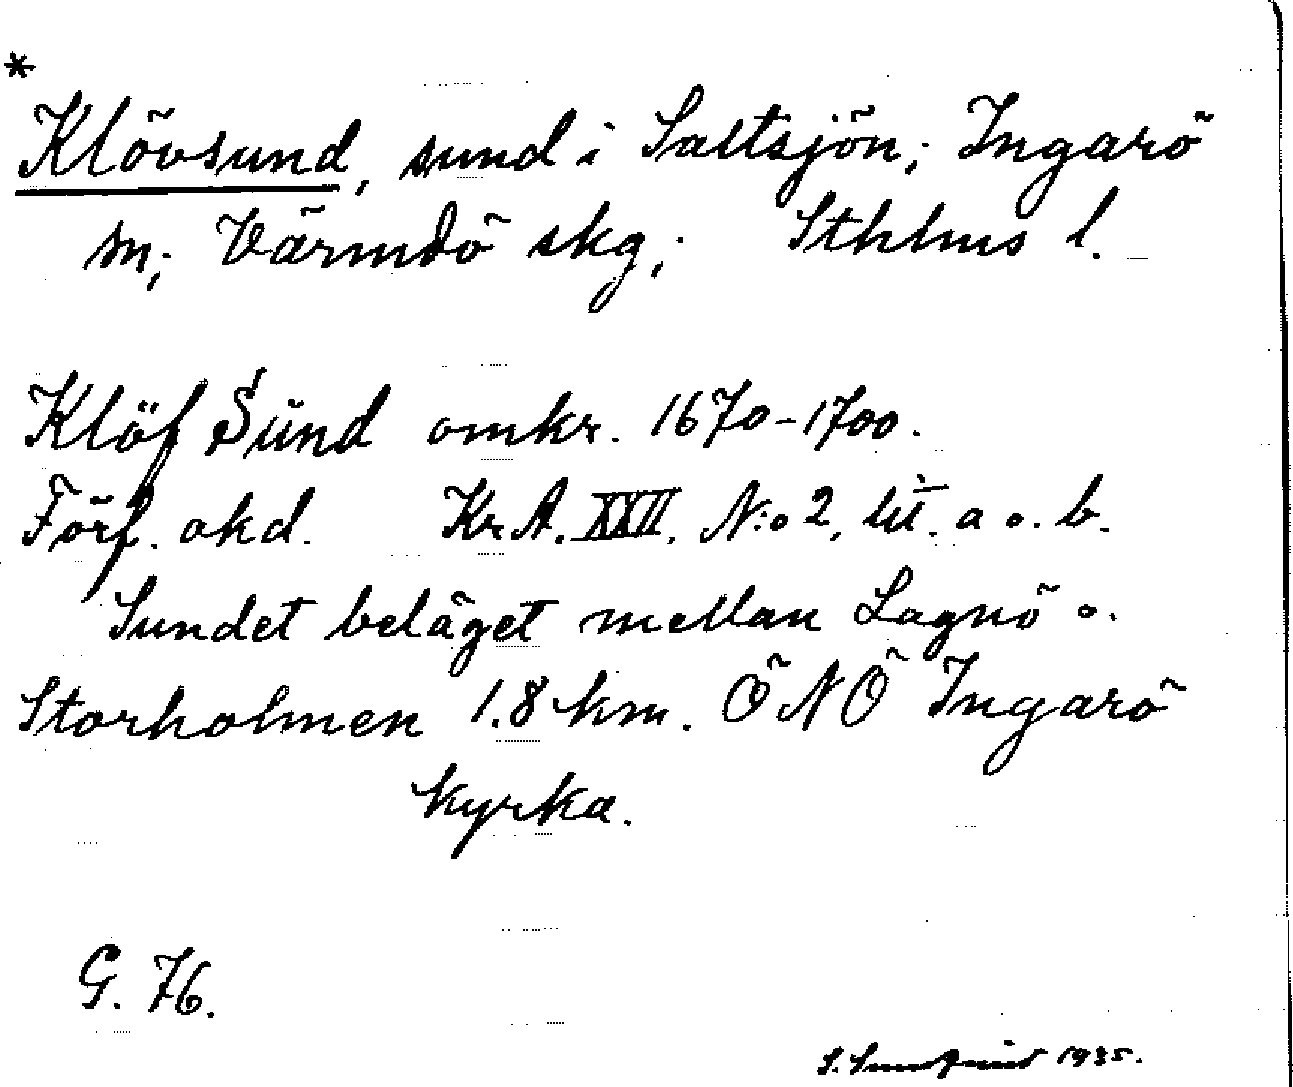 *
Klövsund, sund i Saltsjön; Ingarö
sn; Värmdö skg; Sthlms l.
Klöf Sünd omkr. 1670-1700.
Förf. okd. Kr.A. XXII. N:o 2, litt. a o. b.
Sundet beläget mellan Lagnö o.
Storholmen 1.8 km. ÖNÖ Ingarö
kyrka.
G. 76.
S. 1935.